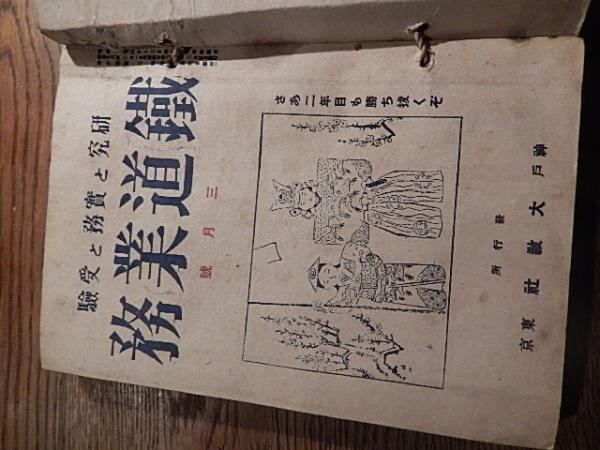 さあ二年目も勝ち抜くぞ
鐵道業務
研究と實務と受驗
三月號
發行所
神戸
大教社
東京